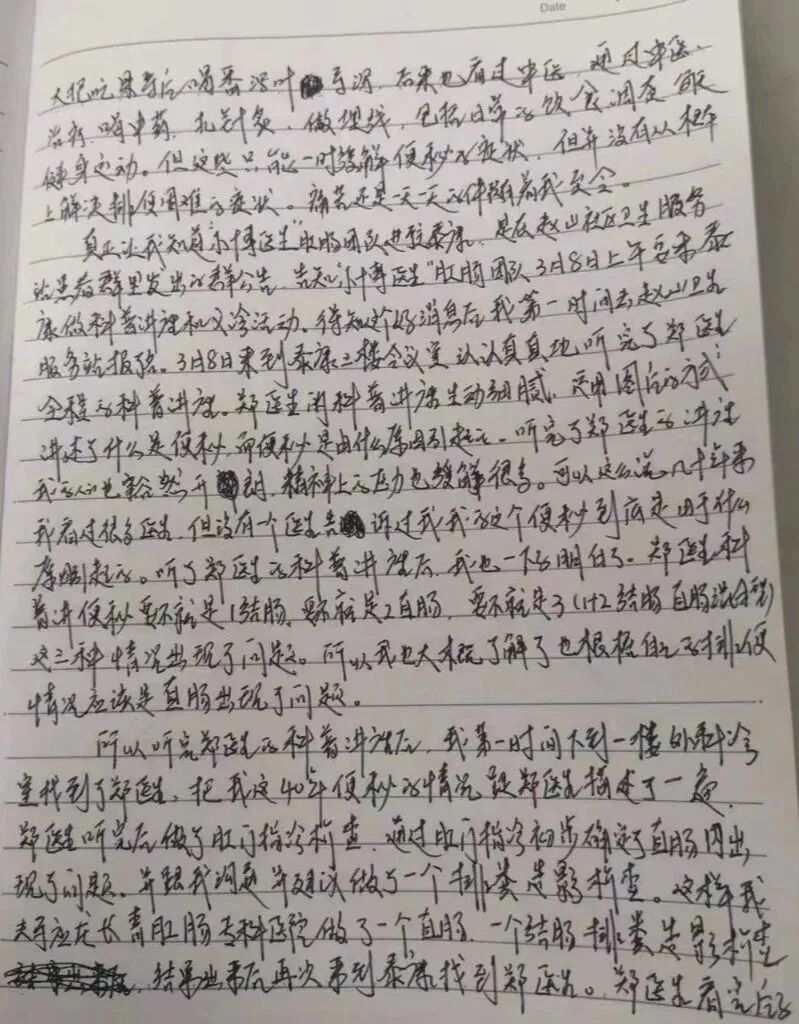 Date
大把吃果导后喝番泻叶导泻，后来也看过中医，通过中医
治疗，喝中药，扎针灸，做埋线，包括日常的饮食调查
健身运动。但这些只能一时缓解便秘的症状，但并没有从根本
上解决排便困难的症状。痛苦还是一天天的伴随着我至今。
真正让我知道"小博医生"肛肠团队进驻泰康，是在赵山社区卫生服务
站患者群里发出的群公告，告知"小博医生"肛肠团队3月8日上午要来泰
康做科普讲座和义诊活动。得知这个好消息后我第一时间去赵山卫生
服务站报名。3月8日来到泰康三楼会议室认认真真地听完了郑医生
全程的科普讲座。郑医生的科普讲座生动细腻，运用图片的方式
讲述了什么是便秘，而便秘是由什么原因引起的。听完了郑医生的讲座
我的心也豁然开朗，精神上的压力也缓解很多。可以这么说几十年来
我看过很多医生，但没有一个医生告诉过我我的这个便秘到底是由于什么
原因引起的。听了郑医生的科普讲座后，我也一下子明白了。郑医生科
普讲便秘要不就是1结肠，要不就是2直肠，要不就是3（1+2结肠直肠混合型）
这三种情况出现了问题。所以我也大概了解了也根据自己的排便
情况应该是直肠出现了问题。
所以听完郑医生的科普讲座后，我第一时间下到一楼外科诊
室找到了郑医生，把我这40年便秘的情况跟郑医生描述了一遍，
郑医生听完后做了肛门指诊检查，通过肛门指诊初步确定了直肠内出
现了问题，并跟我沟通并建议做了一个排粪造影检查。这样我
去马应龙长青肛肠专科医院做了一个直肠，一个结肠排粪造影检查
，结果出来后再次来到泰康找到郑医生。郑医生看完后